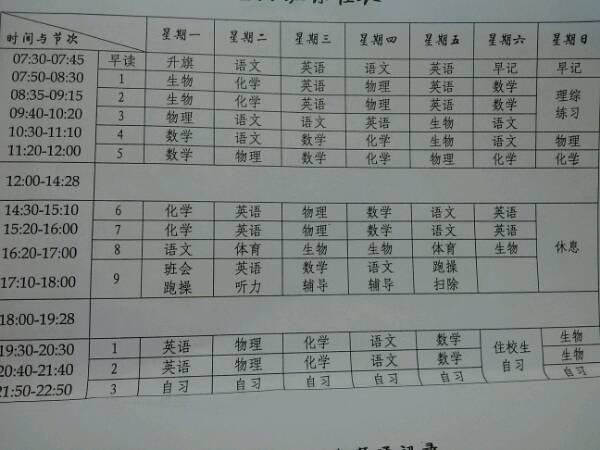 时间与节次 星期一 星期二 星期三 星期四 星期五 星期六 星期日
07:30-07:45 早读 升旗 语文 英语 语文 英语 早记 早记
07:50-08:30 1 生物 化学 英语 物理 英语 数学 理综
08:35-09:15 2 生物 化学 英语 物理 英语 数学 练习
09:40-10:20 3 物理 语文 语文 英语 生物 语文
10:30-11:10 4 数学 语文 数学 化学 生物 语文 物理
11:20-12:00 5 数学 物理 数学 化学 物理 化学 化学
12:00-14:28
14:30-15:10 6 化学 英语 物理 数学 语文 英语 休息
15:20-16:00 7 化学 英语 物理 数学 语文 英语
16:20-17:00 8 语文 体育 生物 生物 体育 生物
17:10-18:00 9 班会 英语 数学 语文 跑操
跑操 听力 辅导 辅导 扫除
18:00-19:28
19:30-20:30 1 英语 物理 化学 语文 数学 住校生 生物
20:40-21:40 2 英语 物理 化学 语文 数学 自习 生物
21:50-22:50 3 自习 自习 自习 自习 自习 自习